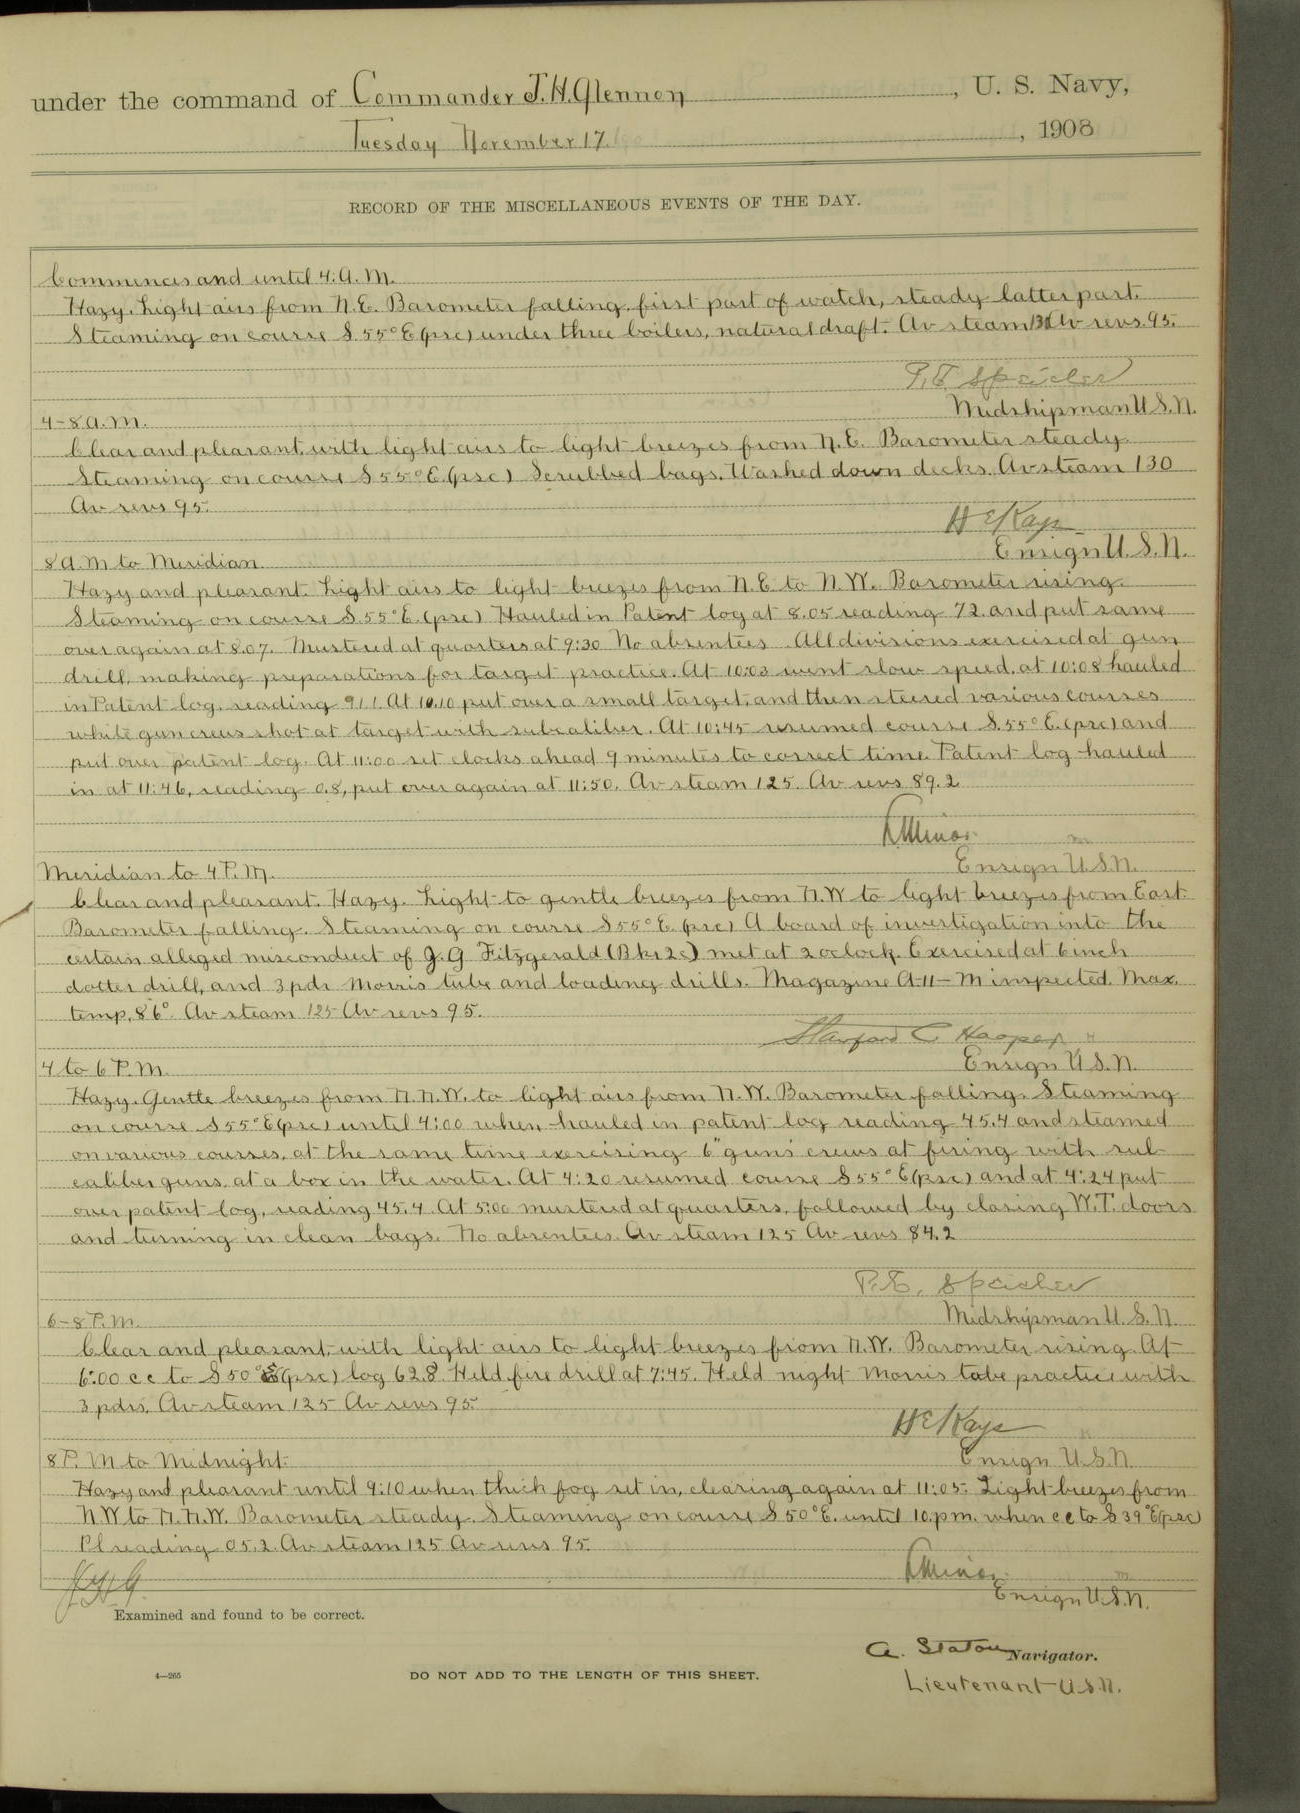 under the command of Commander J.H. Glennon, U. S. Navy,
Tuesday November 17, 1908
RECORD OF THE MISCELLANEOUS EVENTS OF THE DAY.
Commences and until 4: A. M.
Hazy. Light airs from N.E. Barometer falling, first part of watch, steady latter part.
Steaming on course S 55° E (psc) under three boilers, natural draft. Av steam 130 Av revs. 95.
P.E. Speicher
Midshipman U.S.N.
4-8 A.M.
Clear and pleasant, with light airs to light breezes from N.E. Barometer steady.
Steaming on course S 55° E. (psc) Scrubbed bags. Washed down decks. Av steam 130
Av revs 95.
H E Kays
Ensign U.S.N.
8 A.M to Meridian.
Hazy and pleasant. Light airs to light breezes from N.E to N.W. Barometer rising.
Steaming on course S.55° E. (psc) Hauled in Patent log at 8.05 reading 72. and put same
over again at 8.07. Mustered at quarters at 9:30 No absentees. All divisions exercised at gun
drill, making preparations for target practice. At 10:03 went slow speed, at 10:08 hauled
in Patent log, reading 91.1. At 10.10 put over a small target, and then steered various courses
while gun crews shot at target with subcaliber. At 10:45 resumed course S.55° E. (psc) and
put over patent log. At 11:00 set clocks ahead 9 minutes to correct time. Patent log hauled
in at 11:46, reading 0.8, put over again at 11:50. Av steam 125. Av revs 89.2
Minor
Ensign U.S.N.
Meridian to 4 P.M.
Clear and pleasant. Hazy. Light to gentle breezes from N.W to light breezes from East.
Barometer falling. Steaming on course S 55° E (psc) A board of investigation into the
certain alleged misconduct of J.G Fitzgerald (Bkr 2c) met at 2 oclock. Exercised at 6 inch
dotter drill, and 3 pdr Morris tube and loading drills. Magazine A-11-M inspected. Max.
temp. 86° Av steam 125 Av revs 95.
Stanford C Hooper
Ensign U.S.N.
4 to 6 P.M.
Hazy. Gentle breezes from N.N.W. to light airs from N.W. Barometer falling. Steaming
on course S 55° E (psc) until 4:00 when hauled in patent log reading 45.4 and steamed
on various courses, at the same time exercising 6" guns' crews at firing with sub-
caliber guns, at a box in the water. At 4:20 resumed course S 55° E (psc) and at 4:24 put
over patent log, reading 45.4. At 5:00 mustered at quarters, followed by closing W.T. doors
and turning in clean bags. No absentees. Av steam 125 Av revs 84.2
P.E. Speicher
Midshipman U.S.N.
6-8 P.M.
Clear and pleasant, with light airs to light breezes from N.W. Barometer rising. At
6:00 c c to S 50° E (psc) log 62.8. Held fire drill at 7:45. Held night Morris tube practice with
3 pdrs. Av steam 125 Av revs 95
H E Kays
Ensign U.S.N.
8 P.M to Midnight.
Hazy and pleasant until 9:10 when thick fog set in, clearing again at 11:05. Light breezes from
N.W to N.N.W. Barometer steady. Steaming on course S 50° E. until 10.pm. when c c to S 39° E (psc)
Pl reading 05.2. Av steam 125 Av revs 95.
Minor
Ensign U.S.N.
J.H.G.
Examined and found to be correct.
A. Staton Navigator.
Lieutenant U.S.N.
4—265
DO NOT ADD TO THE LENGTH OF THIS SHEET.